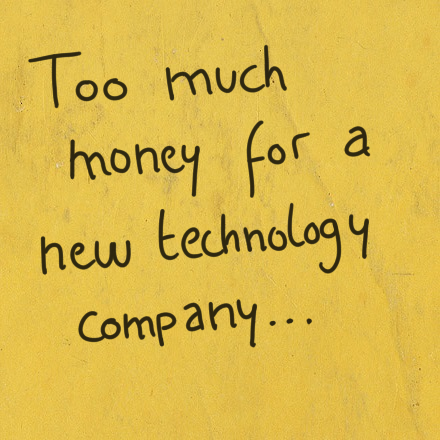 Too much
money for a
new technology
company...